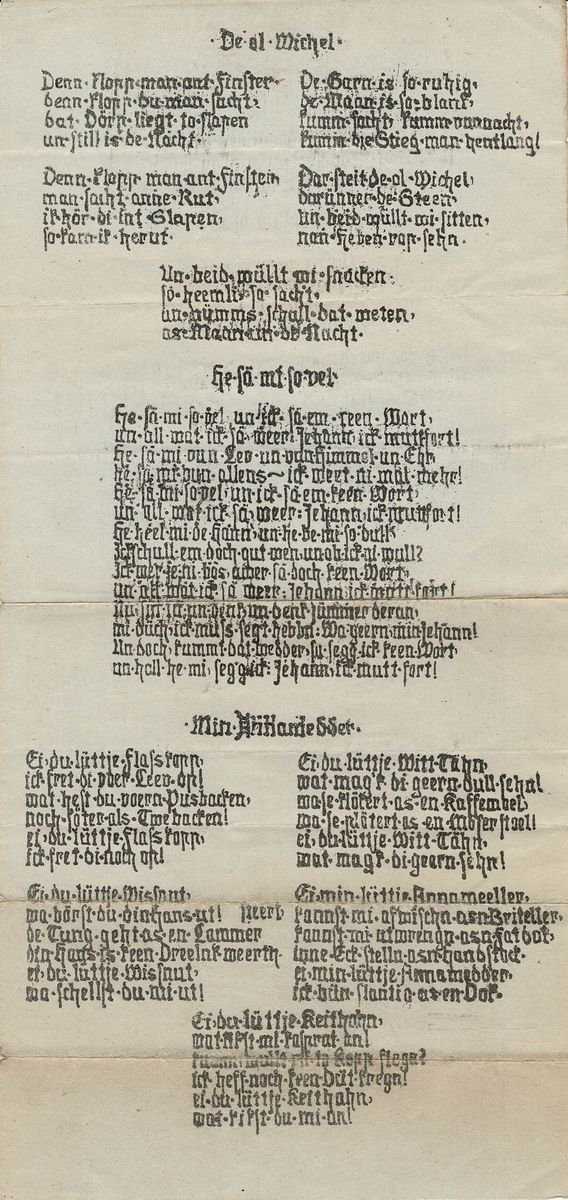 De ol Michel
Denn klopp man ant Finster
denn klopp du man sacht,
dat Dörp liegt to slapen
un still is de Nacht.
Denn klopp man ant Finster
man sacht anne Rut,
ik hör di int Slapen,
so kam ik herut.
De Garn is so ruhig,
de Maan is so blank,
kumm sacht, kumm vannacht,
kumm die Stieg man hentlang!
Dar steit de ol Michel,
darünner de Steen,
un beid wüllt wi sitten,
nan Heben rop sehn.
Un beid wüllt wi snacken
so heemli, so sacht,
un nümms schall dat weten,
as Maan in de Nacht.
He sä mi so vel
He sä mi so vel un ick sä em keen Wort,
un all wat ick sä, weer: Jehann, ick mutt fort!
He sä mi vun Lev un vun Himmel un Ehr,
he sä mi vun allens ~ ick weet ni mal mehr!
He sä mi so vel, un ick sä em keen Wort,
un all wat ick sä, weer: Jehann, ick mutt fort!
He heel mi de Hann, un he be mi so dull,
ick schull em doch gut wen un ob ick ni wull?
Ick wer je ni bös, awer sä doch keen Wort,
un all wat ick sä weer: Jehann, ick mutt fort!
Nu sitt ick un denk, un denk jümmer deran,
mi düch, ick muss segt hebbn: Wa geern, min Jehann!
Un doch, kummt dat wedder, so segg ick keen Wort,
un holl he mi, segg ick: Jehann, ick mutt fort!
Min
Ei du lüttje Flasskopp,
ick fret di vöer Leev op!
wat hest du voern Pusbacken,
noch söter als Twebacken!
ei, du lüttje Flasskopp,
ick fret di noch op!
Ei, du lüttje Wissnut,
wa börst du din Hans ut! Steert
de Tung geht as en Lammer
din Hans is keen Dreelnk weerth
ei, du lüttje Wissnut,
wa schellst du mi ut!
Ei, du lüttje Witt Tähn,
wat magk di geern dull sehn!
wa se klötert as en Kaffemöel,
wa se rötert as en
ei, du lüttje Witt Tähn,
wat magk di geern sehn!
Ei min lüttje Annameeller,
kannst mi afwischn asn Britteller,
kannst mi utwrengn asn Fatdok,
inne Eck stelln asn Handstock,
ei min lüttje Annamedder,
ick bün slantig as en Dok.
Ei, du lüttje Keithahn,
wat kikst mi an!
Kopp flegn?
ick heff noch keen Dütt kregn!
ei, du lüttje Keithahn,
wat kikst du mi an!